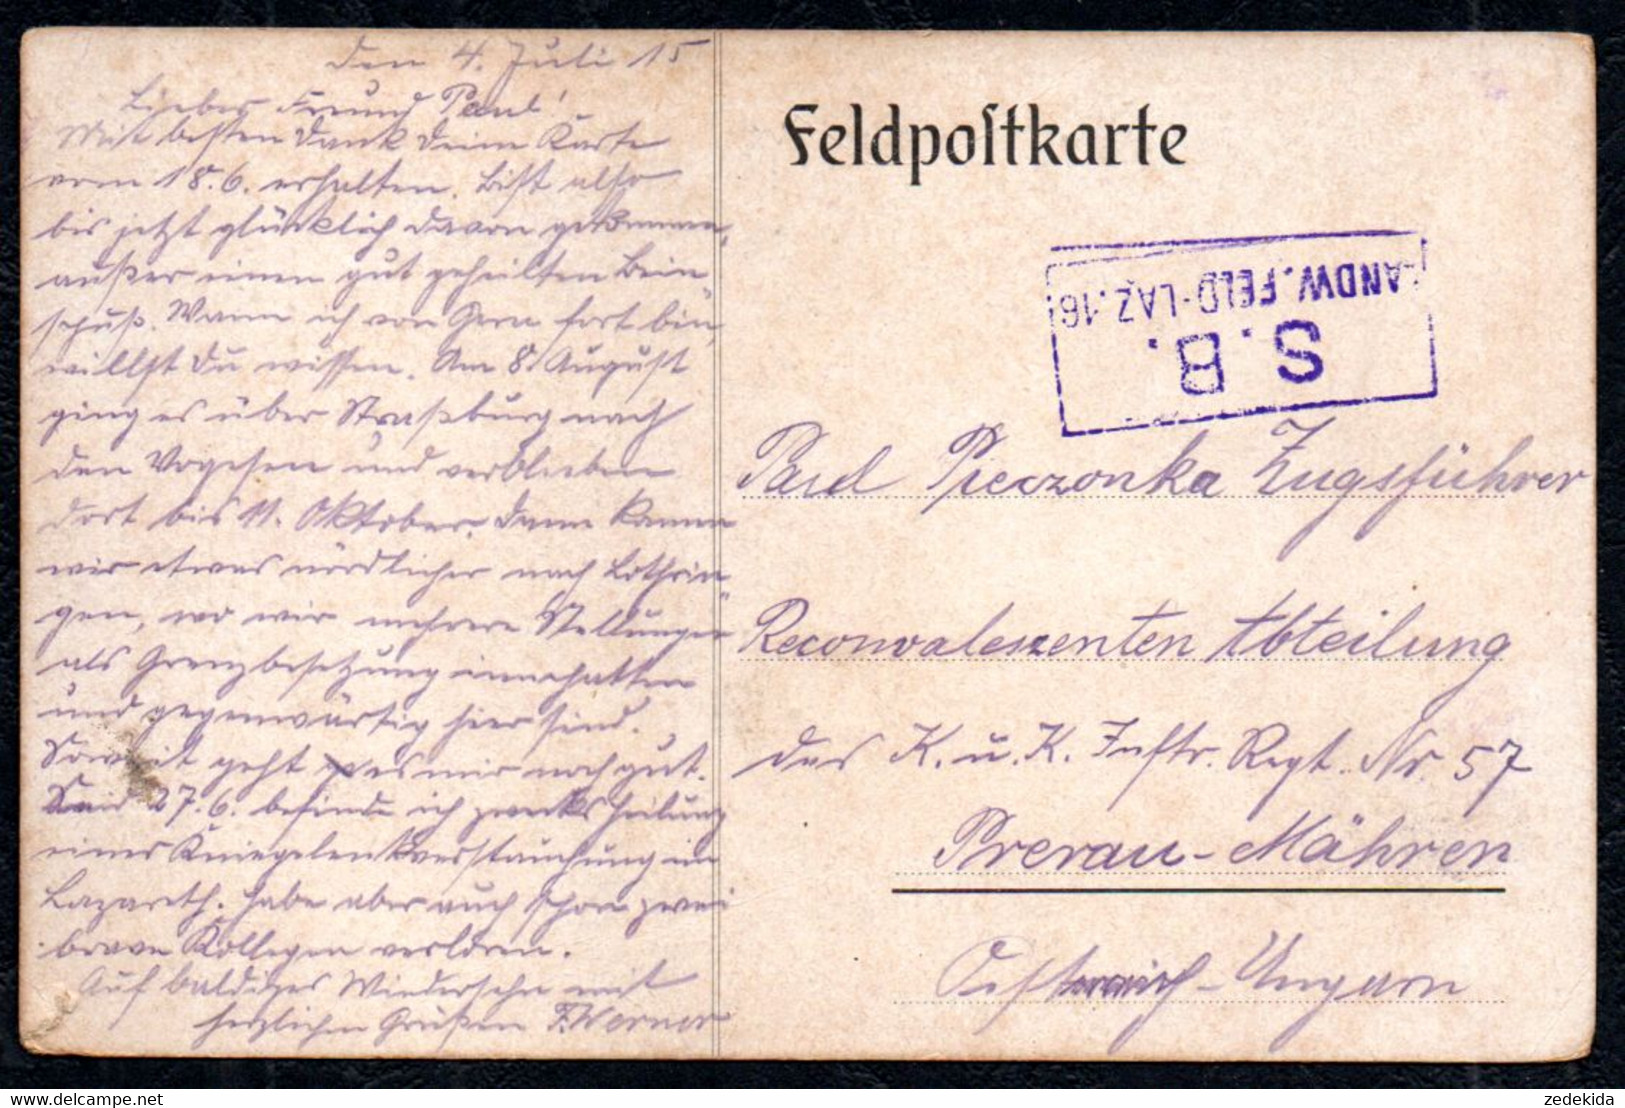 den 4. Juli 15
Lieber Freund Paul!
Mit besten Dank Deine Karte
vom 18.6. erhalten. Bist also
bis jetzt glücklich davon gekommen,
außer einen gut geheilten Bein-
schuß. Wann ich von Gera fort bin,
willst Du wissen. Am 8. August
ging es über Straßburg nach
den Vogesen und verblieben
dort bis 11. Oktober. Dann kamen
wir etwas nördlicher nach Lothrin-
gen, wo wir mehrere Stellungen
als Grenzbesetzung innehatten
und gegenwärtig hier sind.
Soweit geht es mir noch gut.
Seid 27.6. befinde ich zwecks Heilung
einer Kniegelenkverstauchung im
Lazareth. Habe aber auch schon zwei
brave Kollegen verloren.
Auf baldiges Wiedersehn mit
herzlichen Grüßen F. Werner
Feldpoſtkarte
S. B.
LANDW. FELD-LAZ. 16
Paul Pieczonka Zugsführer
Reconvaleszenten Abteilung
des K. u. K. Inftr. Regt. Nr. 57
Prerau-Mähren
Österreich-Ungarn
zedekida